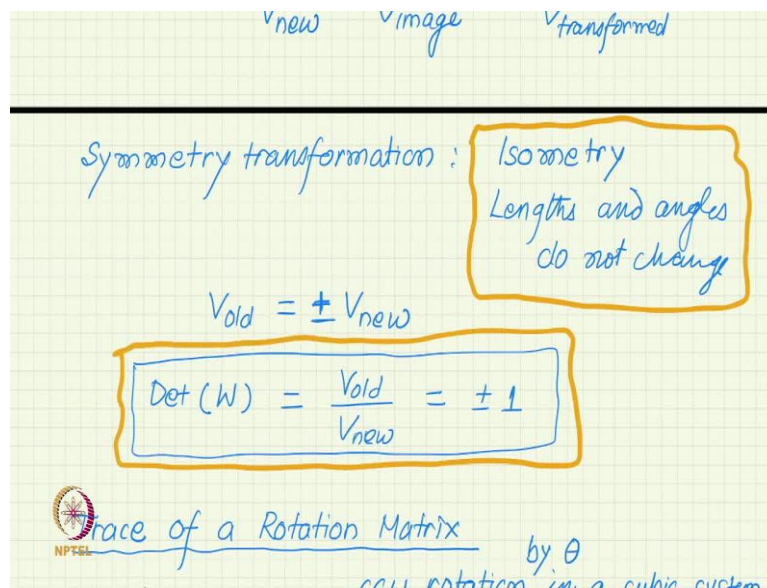 Vnew Vimage Vtransformed
Symmetry transformation : Isometry
Lengths and angles
do not change
Vold = ± Vnew
Det (W) = Vold / Vnew = ± 1
Trace of a Rotation Matrix by θ
NPTEL
rotation in a cubic system